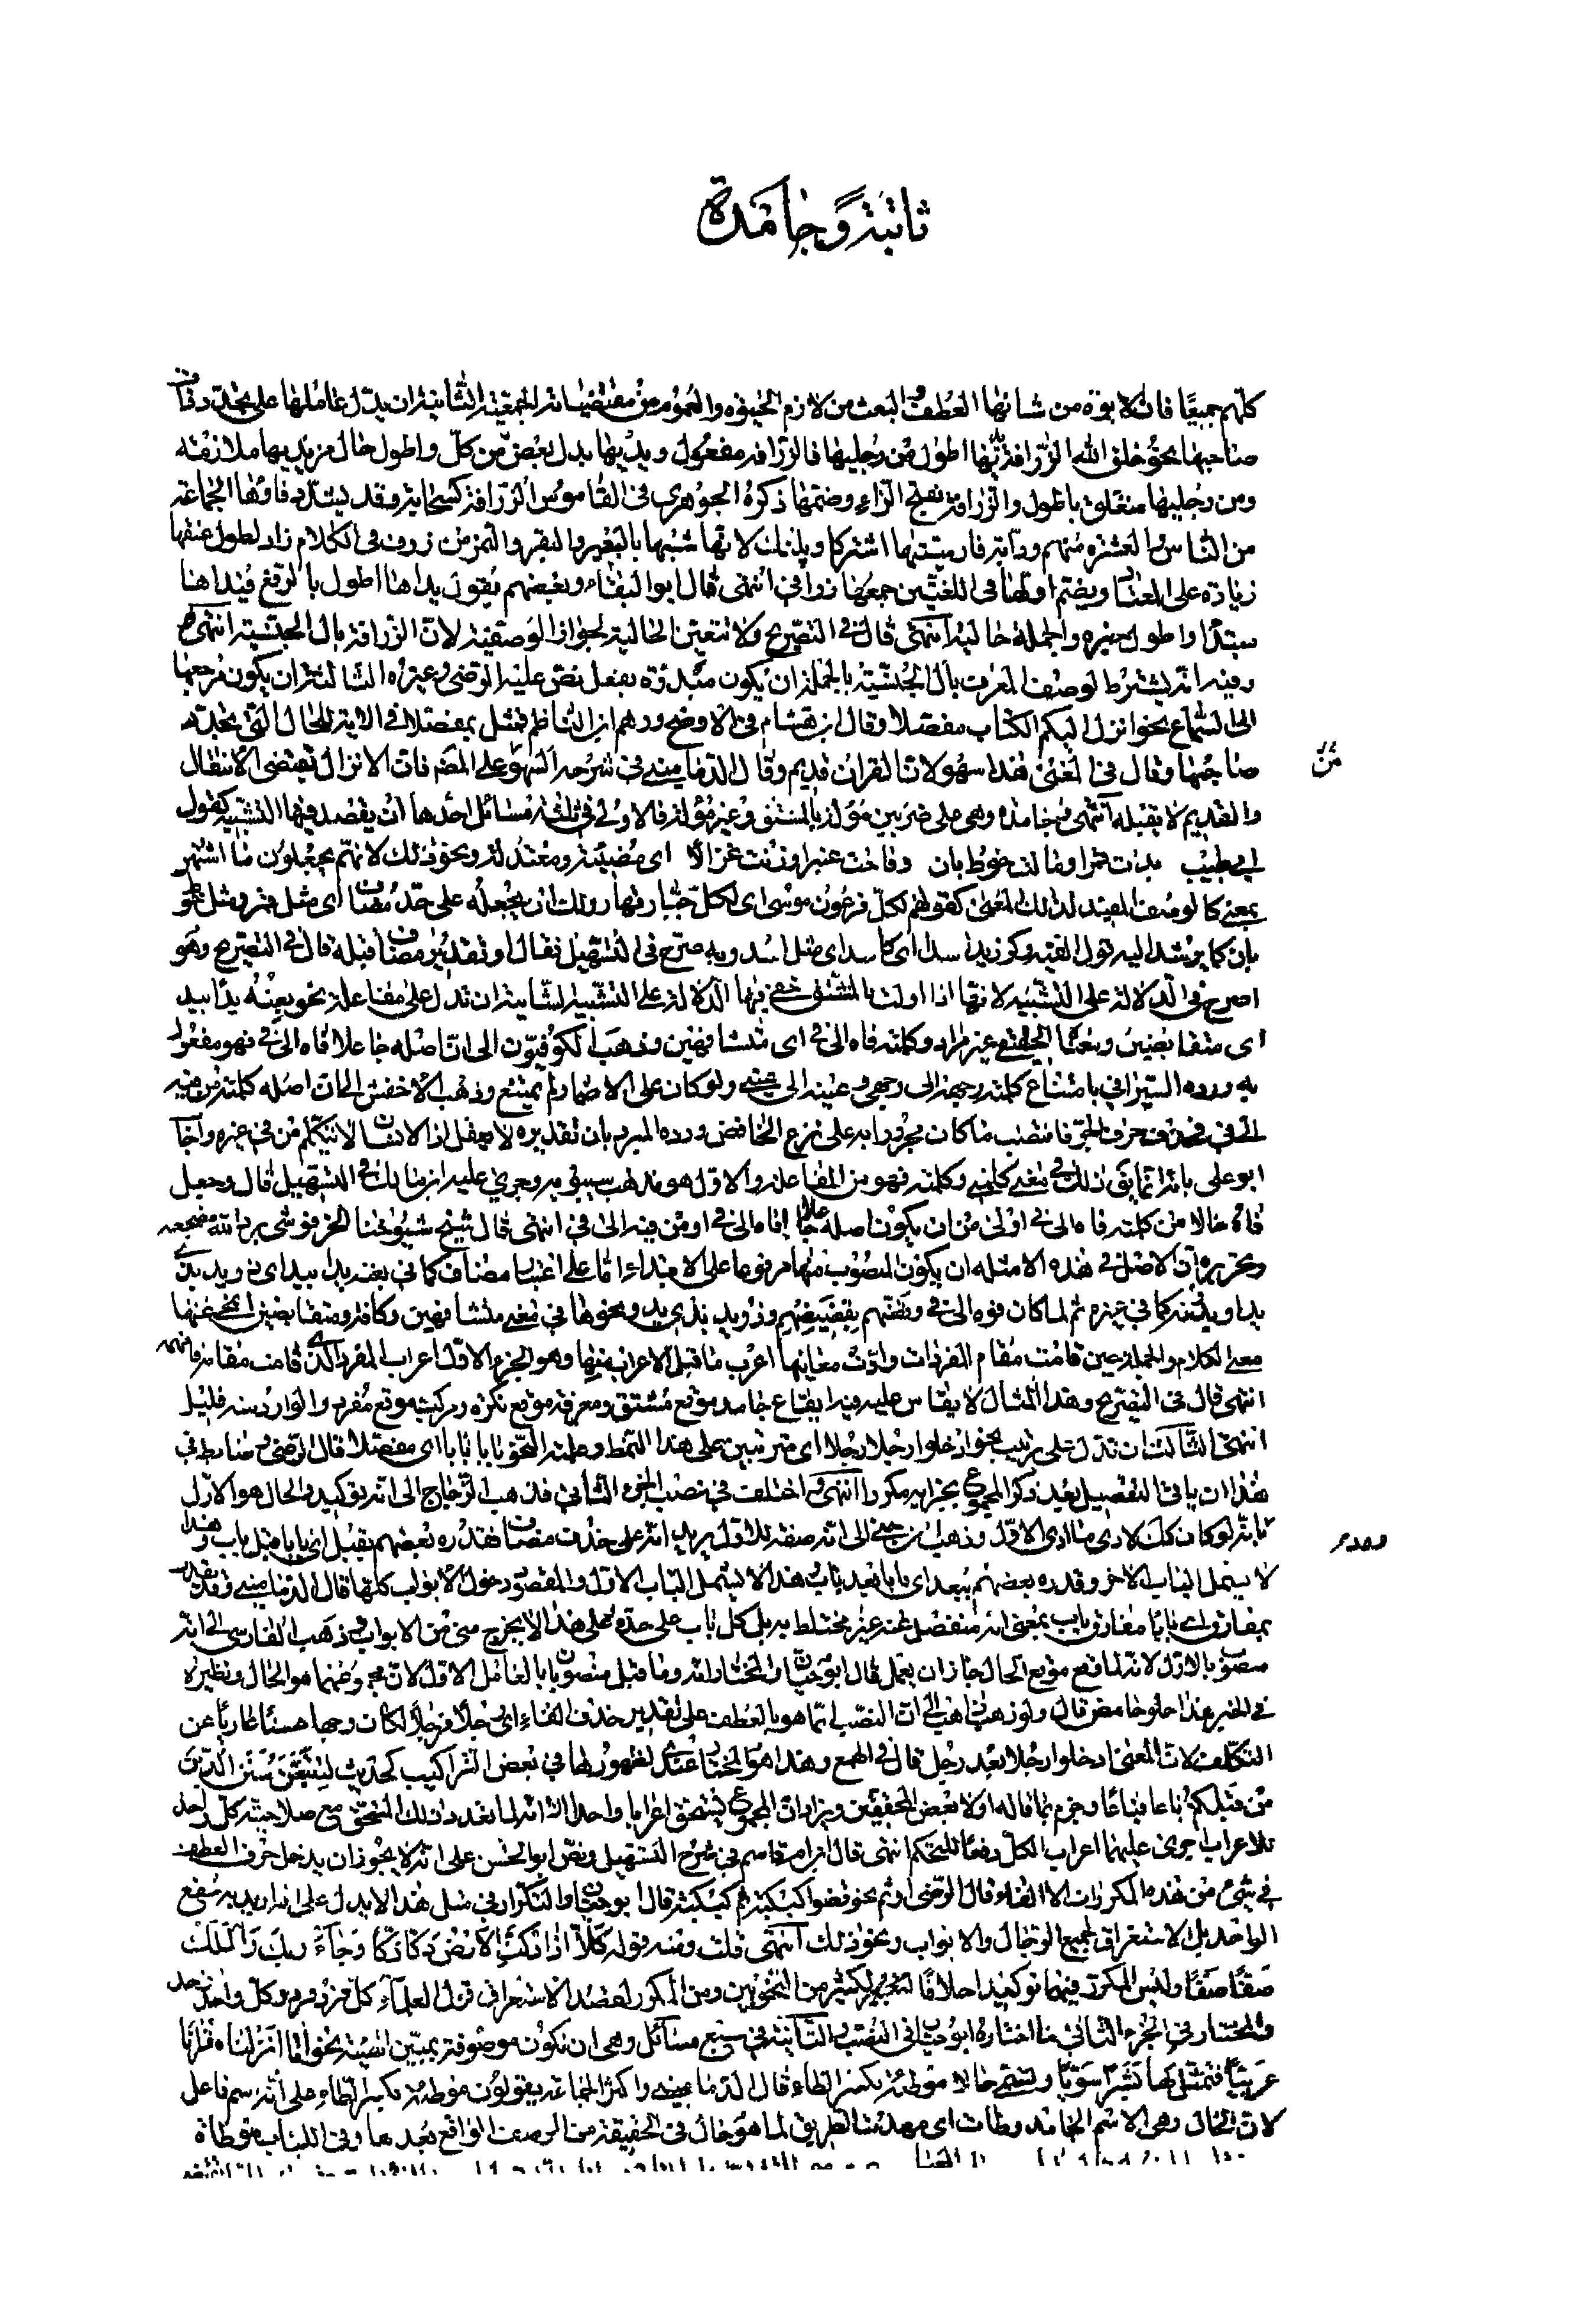 ثابتة وجامدة
كلهم جميعًا فان الابوة من شانها العطف والبعث من لازم والعموم من مقتضيات الجمعية الثانية ان يدل عاملها على تجدد ذات
صاحبها نحو خلق الله الزرافة يديها اطول من رجليها فالزرافة مفعول ويديها بدل بعض من كل واطول حال من يديها ملازمة
ومن رجليها متعلق باطول والزرافة بفتح الزاء وضمها ذكره الجوهري في القاموس الزرافة كسحابة وقد تشدد فاؤها الجماعة
من الناس والعشرة منهم ودابة فارسيتها اشتركا وپلنك لانها شبها بالبعير والبقر والنمر من زرف في الكلام زاد لطول عنقها
زيادة على المعتاد ويضم اولها في اللغتين جمعها زرافي انتهى قال ابو البقاء وبعضهم يقول يداها اطول بالرفع فيداها
مبتدا واطول خبره والجملة حالية انتهى قال في التصريح ولا تتعين الحالية لجواز الوصفية لان الزرافة بال الجنسية انتهى
وفيه انه يشترط لوصف المعرف بال الجنسية بالجملة ان يكون مبدوة بفعل نص عليه الرضي وغيره الثالثة ان يكون مرجعها
الى السماع نحو انزل اليكم الكتاب مفصلا وقال ابن هشام في الاوضح ووهم ابن الناظم فمثل بمفصلا في الاية للحال التي تجدد
صاحبها وقال في المغني هذا سهو لان القران قديم وقال الدماميني في شرحه السهو على المص فان الانزال يقتضي الانتقال
والقديم لا يقبله انتهى جامدة وهي على ضربين مؤولة بالمشتق وغير مؤولة فالاولى في ثلثة مسائل احدها ان يقصد فيها التشبيه كقول
ابي طيب بدت قمرا ومالت خوط بان وفاحت عنبرا ورنت غزالا اي مضيئة ومعتدلة ونحو ذلك لانهم يجعلون ما اشتهر
بمعنى كالوصف المفيد لذلك المعنى كقولهم لكل فرعون موسى اي لكل جبار قهار ولك ان يجعله على حذف مضاف اي مثل قمر ومثل خو
بان كما يرشد اليه قول الفيه وكر زيد اسدا اي كاسد اي مثل اسد وبه صرح في التسهيل فقال او تقدير مضاف قبله قال في التصريح وهو
اصرح في الدلالة على التشبيه لانها اذا اولت بالمشتق خفي فيها الدلالة على التشبيه الثانية ان تدل على مفاعلة نحو بعته يدا بيد
اي متقابضين وكلمته فاه الى في اي متشافهين وذهب الكوفيون الى ان اصله جاعلا فاه الى في فهو مفعول
به ورده السيرافي بامتناع كلمته وجهه الى وجهي وعينه الى عيني ولو كان على الاضمار لم يمتنع وذهب الاخفش الى ان اصله كلمته من فيه
الى في فحذف حرف الجر فانتصب ما كان مجرورا به على نزع الخافض ورده المبرد بان تقديره لا يعقل اذ الانسان لا يتكلم من في غيره واجاب
ابو علي بانه انما يق ذلك في معنى كلمني وكلمته فهو من المفاعلة والاول هو مذهب سيبويه وجرى عليه ابن مالك في التسهيل قال وجعل
فاه حالا من كلمته فاه الى في اولى من ان يكون اصله جاعلا فاه الى في او من فيه الى في انتهى قال شيخ شيوخنا الخرفوشي برد الله مضجعه
وتحريره ان الاصل في هذه الامثله ان يكون المنصوب منها مرفوعا على الابتداء اما على اعتبار مضاف كما في بعته يدا بيد اي ذو يد بذي
يد او بدونه كما في غيره ثم لما كان فوه الى في وقضهم بقضيضهم وذو يد بذي يد ونحوها في معنى متشافهين وكافة ومتقابضين انمحى عنها
معنى الكلام والجملة حين قامت مقام المفردات وادت معانيها اعرب ما قبل الاعراب منها وهو الجزء الاول اعراب المفرد الذي قامت مقامه
انتهى قال في التصريح وهذا المثال لا يقاس عليه فيه ايقاع جامد موقع مشتق ومعرفة موقع نكرة ومركب موقع مفرد والوارد منه قليل
انتهى الثالثة ان تدل على ترتيب نحو ادخلوا رجلا رجلا اي مترتبين على هذا النمط وعلمته النحو بابا بابا اي مفصلا قال الرضي ضابطه في
هذا ان ياتي التفصيل بعد ذكر المجموع بجزئيه مكررا انتهى واختلف في نصب الجزء الثاني فذهب الزجاج الى انه توكيد والحال هو الاول
بانه لو كان كك لادى ما ادى الاول وذهب ابن جني الى انه صفة للاول يريد انه على حذف مضاف فقدره بعضهم بقبل اي بابا قبل باب وهذا
لا يشمل الباب الاخر وقدره بعضهم ببعد اي بابا بعد باب وهذا لا يشمل الباب الاول والمقصود دخول الابواب كلها قال الدماميني وقد
بمفارق اي بابا مفارق باب بمعنى انه منفصل عنه غير مختلط به بل كل باب على حدة فعلى هذا لا يخرج شيء من الابواب وذهب الفارسي الى انه
منصوب بالاول لانه لما وقع موقع الحال جاز ان يعمل قال ابو حيان والمختار انه وما قبل منصوبان بالعامل الاول لان مجموعهما هو الحال ونظيره
في الخبر هذا حلو حامض قال ولو ذهب ذاهب الى ان النصب انما هو بالعطف على تقدير حذف الفاء اي رجلا فرجلا لكان وجها حسنا عاريا عن
التكلف لان المعنى ادخلوا رجلا بعد رجل قال في الهمع وهذا هو المختار عندي لظهورها في بعض التراكيب كحديث لتتبعن سنن الذين
من قبلكم باعا فباعا وجزم بما قاله اولا بعض المحققين وزاد ان المجموع يستحق اعرابا واحدا الا انه لما تعدد ذلك المستحق مع صلاحية كل واحد
للاعراب اجري عليهما اعراب الكل دفعا للتحكم انتهى قال ابن ام قاسم في شرح التسهيل ونص ابو الحسن على انه لا يجوز ان يدخل حرف العطف
في شيء من هذه المكررات الا الفاء وقال الرضي او ثم نحو مضوا كبكبة ثم كبكبة قال ابو حيان والتكرار في مثل هذا لا يدل على انه اريد به شفع
الواحد بل الاستغراق لجميع الرجال والابواب ونحو ذلك انتهى قلت ومنه قوله كلا اذا دكت الارض دكا دكا وجاء ربك والملك
صفا صفا وليس المكرر فيهما توكيدا خلافا لكثير من النحويين ومن المكرر لقصد الاستغراق قول العلماء كل فرد فرد وكل واحد واحد
والمختار في الجزء الثاني ما اختاره ابو حيان في النصب الثانية في سبع مسائل وهي ان تكون موصوفة نحو انا انزلناه قرانا
عربيا فتمثل لها بشرا سويا وتسمى حالا موطئة بكسر الطاء قال الدماميني واكثر الجماعة يقولون موطئة بكسر الطاء على انه اسم فاعل
لان الحال وهي الاسم الجامد وطات اي مهدت الطريق لما هو حال في الحقيقة من الوصف الواقع بعدها وفي اللباب موطاة